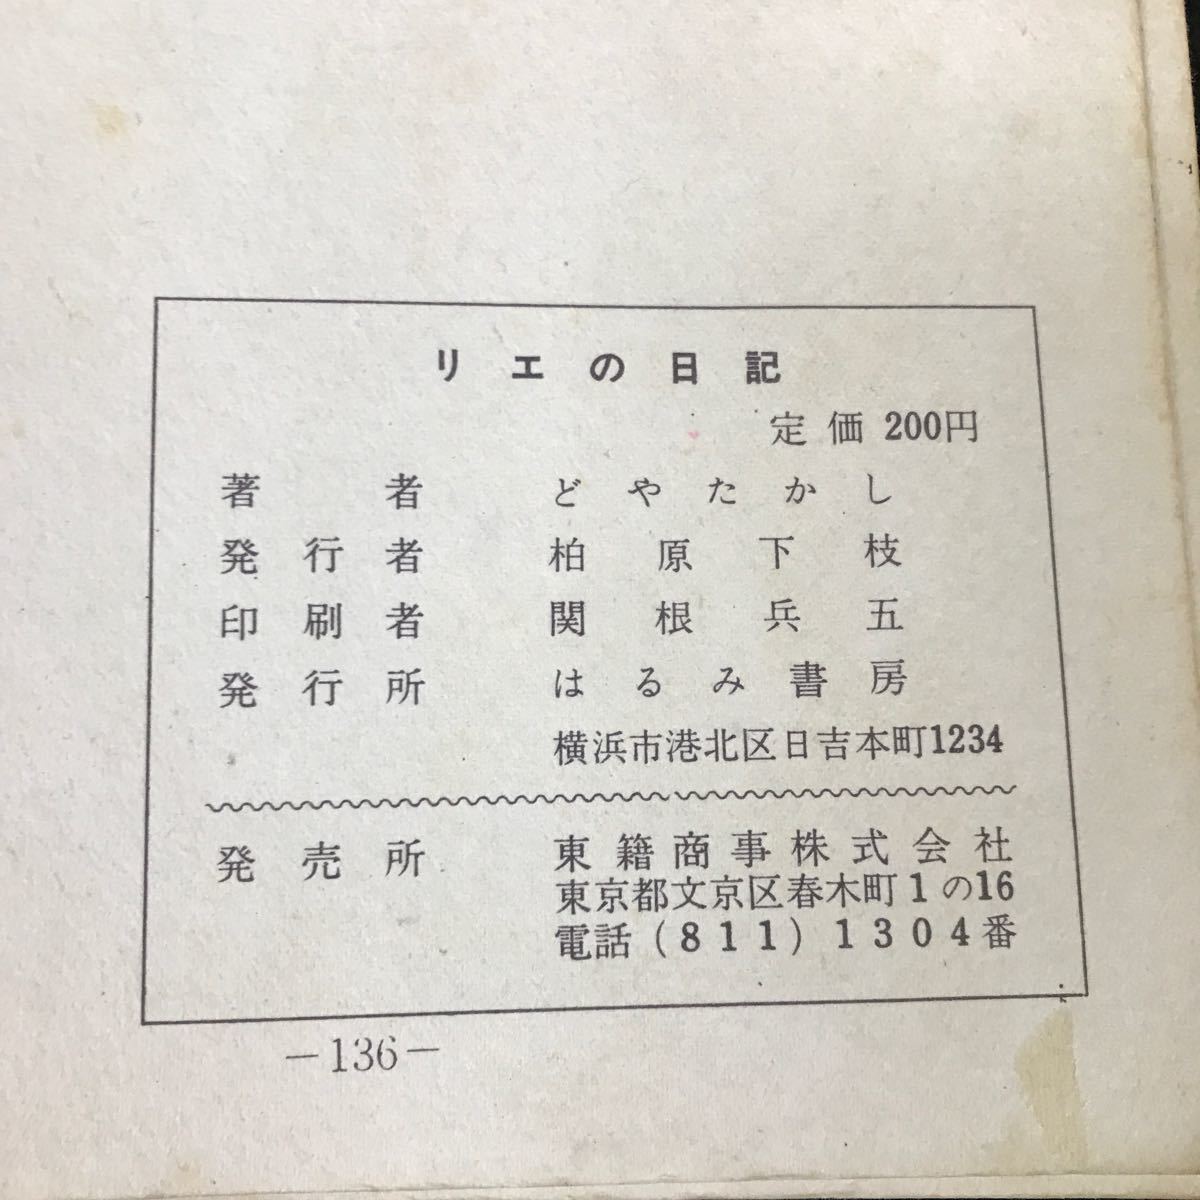 リエの日記
定価 200円
著者 どやたかし
発行者 柏原下枝
印刷者 関根兵五
発行所 はるみ書房
横浜市港北区日吉本町1234
発売所 東籍商事株式会社
東京都文京区春木町1の16
電話(811)1304番
-136-